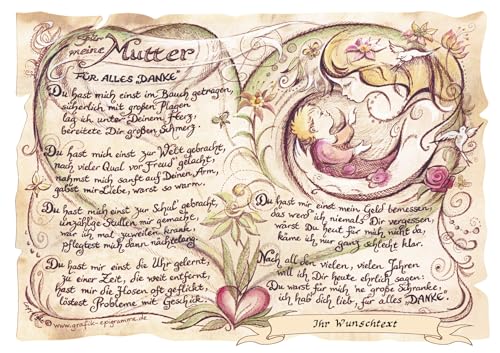 Für
meine Mutter
FÜR ALLES „DANKE"
Du hast mich einst im Bauch getragen,
sicherlich mit großen Plagen
lag ich unter Deinem Herz,
bereitete Dir großen Schmerz.
Du hast mich einst zur Welt gebracht,
nach vieler Qual vor Freud' gelacht,
nahmst mich sanft auf Deinen Arm,
gabst mir Liebe, warst so warm.
Du hast mich einst zur Schul' gebracht,
unzählige Stullen mir gemacht,
war ich mal zuweilen krank,
pflegtest mich dann nächtelang.
Du hast mir einst die Uhr gelernt,
zu einer Zeit, die weit entfernt,
hast mir die Hosen oft geflickt,
löstest Probleme mit Geschick.
Du hast mir einst mein Geld bemessen,
das werd' ich niemals Dir vergessen,
wärst Du heut' für mich nicht da,
käme ich nur ganz schlecht klar.
Nach all den vielen, vielen Jahren
will ich Dir heute ehrlich sagen:
Du warst für mich 'ne große Schranke,
ich hab' dich lieb, für alles „DANKE".
© www.grafik-epigramme.de
Ihr Wunschtext